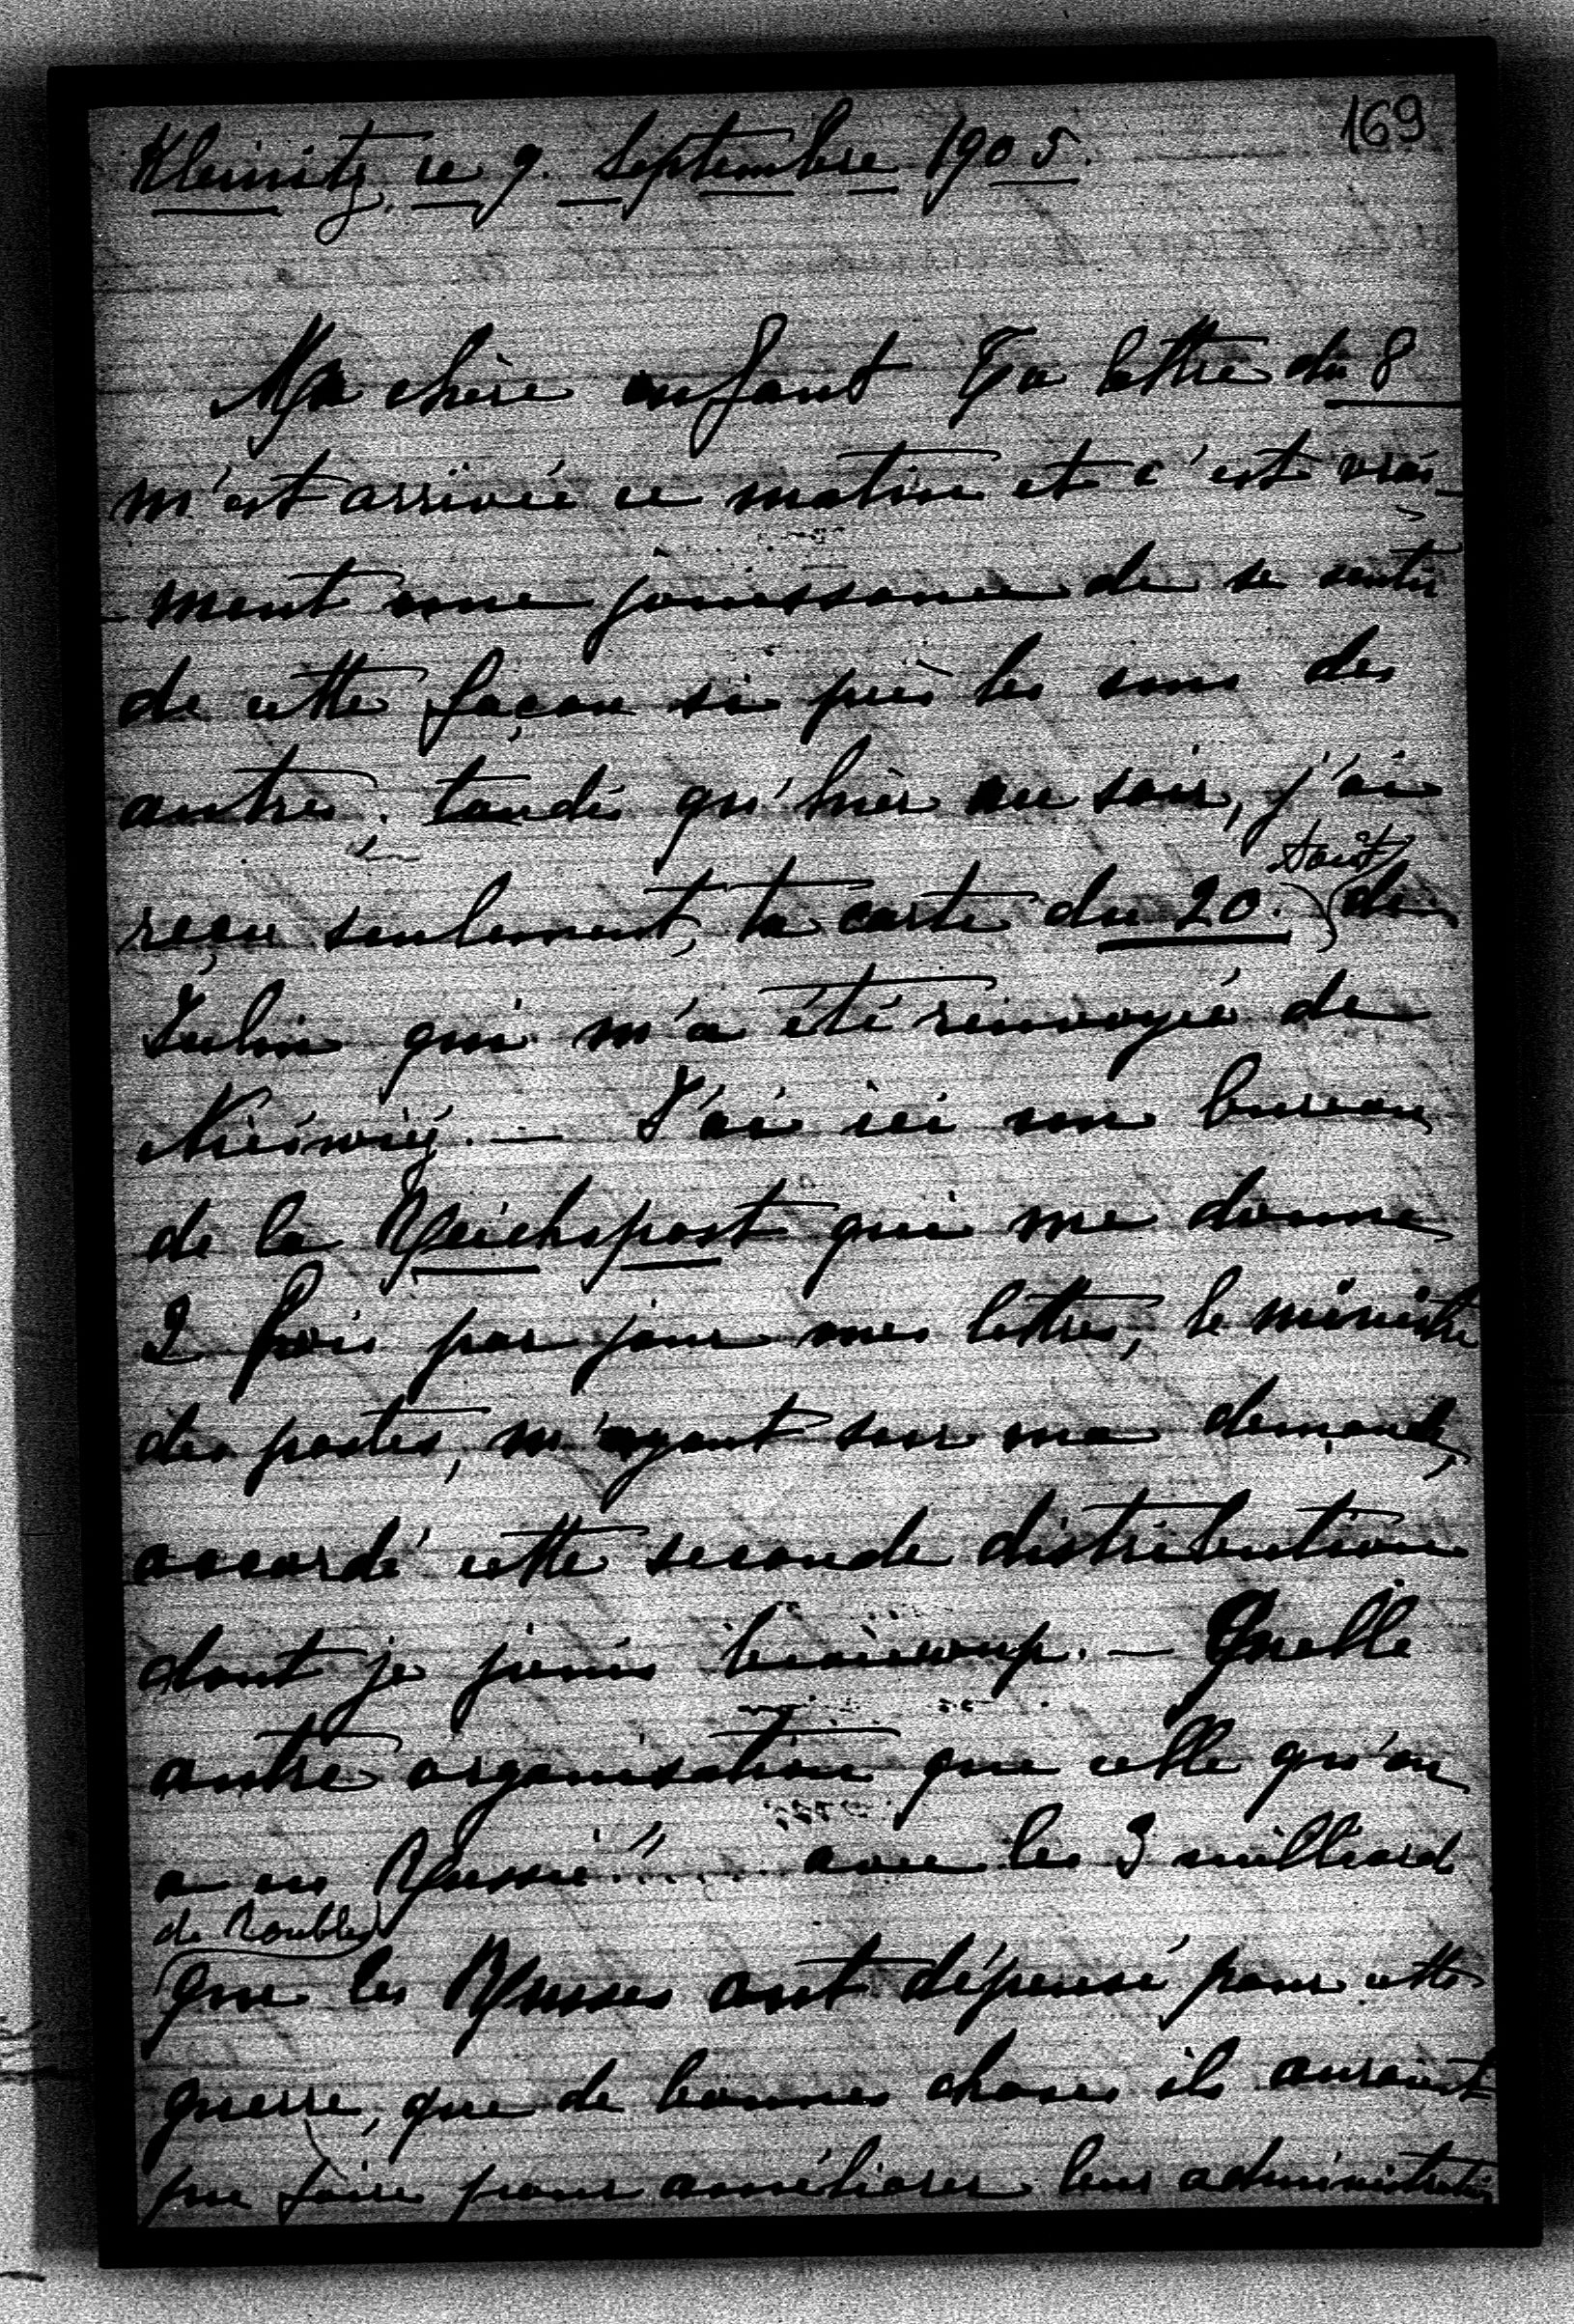 169
Kleinitz, ce 9. Septembre 1905.
Ma chère enfant Ta lettre du 8
m'est arrivée ce matin et c'est vrai-
-ment une jouissance de se sentir
de cette façon si près les uns des
autres, tandis qu'hier au soir, j'ai
reçu seulement, ta carte du 20. Août de
Julin qui m'a été renvoyée de
Nieśwież. — J'ai ici un bureau
de la Reichspost qui me donne
2 fois par jour mes lettres, le ministre
des postes, m'ayant sur ma demande,
accordé cette seconde distribution
dont je jouis beaucoup. — Quelle
autre organisation que celle qu'on
a en Russie!! ..... avec les 3 milliards
de Roubles
que les Russes ont dépensé pour cette
guerre, que de bonnes choses ils auraient
pu faire pour améliorer leur administration